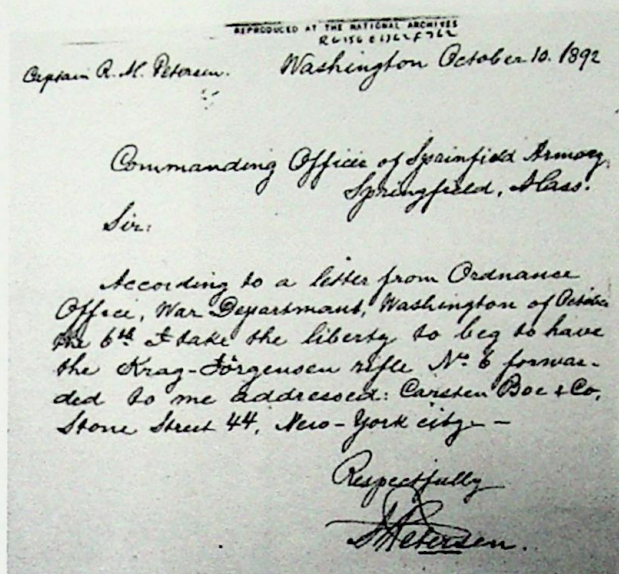 REPRODUCED AT THE NATIONAL ARCHIVES
RG156 E1362 F762
Captain R. M. Petersen. Washington October 10. 1892
Commanding Officer of Sprinfield Armory,
Springfield, Mass.
Sir:
According to a letter from Ordnance
Office, War Department, Washington of October
the 6th I take the liberty to beg to have
the Krag-Jörgensen rifle No 6 forwar-
ded to me addressed: Carsten Boe & Co,
Stone Street 44, New-York city —
Respectfully
Petersen.